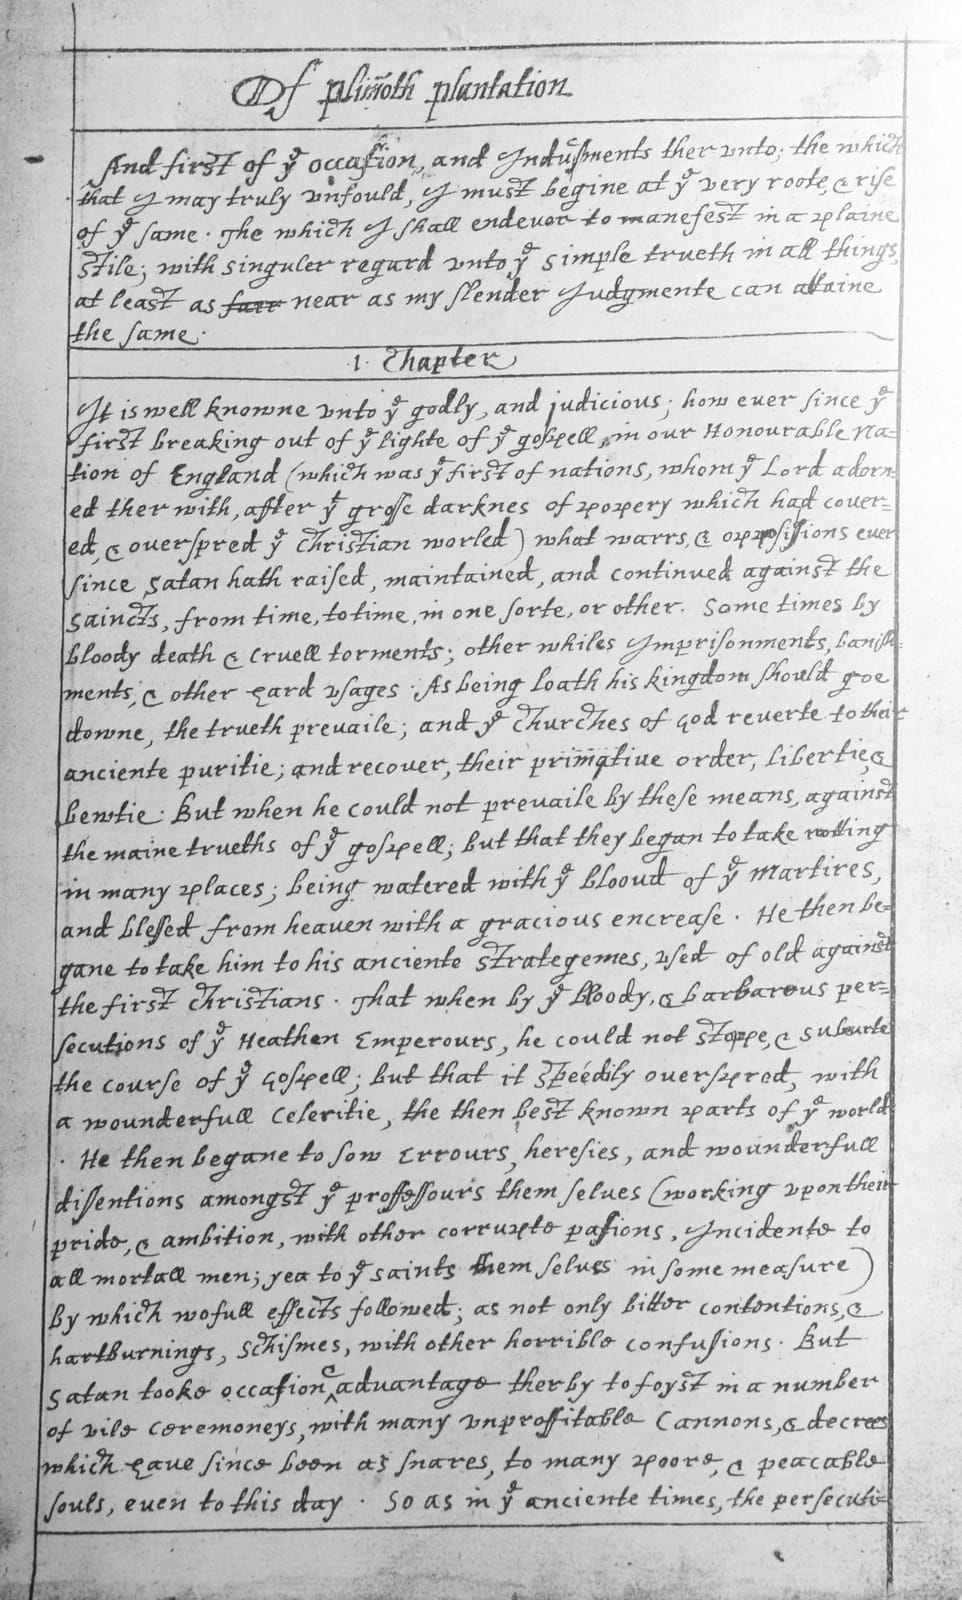 Of plim̄oth plantation
And first of yᵉ occasion, and Indusments ther vnto; the which
that I may truly vnfould, I must begine at yᵉ very roote, & rise
of yᵉ same. The which I shall endevor to manefest in a plaine
stile; with singuler regard vnto yᵉ simple trueth in all things,
at least as ~~farr~~ near as my slender Judgmente can attaine
the same.
.1. Chapter
It is well knowne vnto yᵉ godly, and judicious; how ever since yᵉ
first breaking out of yᵉ lighte of yᵉ gospell, in our Honourable Na=
tion of England (which was yᵉ first of nations, whom yᵉ Lord adorn=
ed ther with, after yᵗ grosse darknes of popery which had cover=
ed, & overspred yᵉ christian worled) what warrs, & oppossissions ever
since Satan hath raised, maintained, and continued against the
saincts, from time, to time, in one sorte, or other. Some times by
bloody death & cruell torments; other whiles Imprisonments, banish=
ments, & other hard vsages. As being loath his kingdom should goe
downe, the trueth prevaile; and yᵉ churches of God reverte to their
anciente puritie; and recover, their primative order, libertie, &
bewtie. But when he could not prevaile by these means, against
the maine trueths of yᵉ gospell; but that they began to take rotting
in many places; being watered with yᵉ bloud of yᵉ Martires,
and blessed from heaven with a gracious encrease. He then be=
gane to take him to his anciente strategemes, vsed of old against
the first christians. That when by yᵉ bloody, & barbarous per=
secutions of yᵉ Heathen Emperours, he could not stoppe, & subuerte
the course of yᵉ Gospell; but that it speedily overspred, with
a wounderfull Celeritie, the then best known parts of yᵉ world
. He then begane to sow Errours, heresies, and wounderfull
dissentions amongst yᵉ proffessours them selves (working vpon their
pride, & ambition, with other corrupte passions, Incidente to
all mortall men; yea to yᵉ saints them selves in some measure)
by which wofull effects followed; as not only bitter contentions, &
hartburnings, schismes, with other horrible confusions. But
Satan tooke occasion & advantage therby to foyst in a number
of vile ceremoneys, with many vnproffitable Cannons, & decrees
which haue since been as snares, to many poore, & peacable
souls, even to this day. So as in yᵉ anciente times, the persecuti=